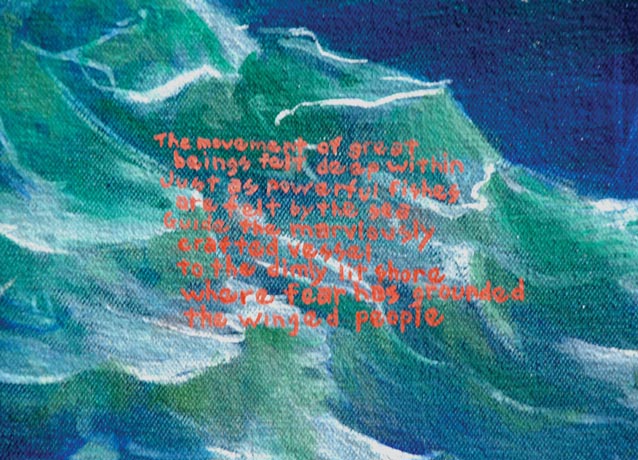 The movement of great
beings felt deep within
Just as powerful fishes
are felt by the sea
Guide the marviously
crafted vessel
to the dimly lit shore
where fear has grounded
the winged people